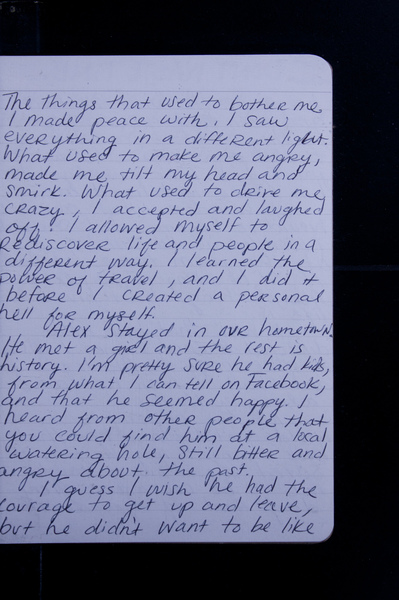 The things that used to bother me
I made peace with. I saw
everything in a different light.
What used to make me angry,
made me tilt my head and
smirk. What used to drive me
crazy, I accepted and laughed
off. I allowed myself to
rediscover life and people in a
different way. I learned the
power of travel, and I did it
before I created a personal
hell for myself.
Alex stayed in our hometown.
He met a girl and the rest is
history. I'm pretty sure he had kids,
from what I can tell on Facebook,
and that he seemed happy. I
heard from other people that
you could find him at a local
watering hole, still bitter and
angry about the past.
I guess I wish he had the
courage to get up and leave,
but he didn't want to be like